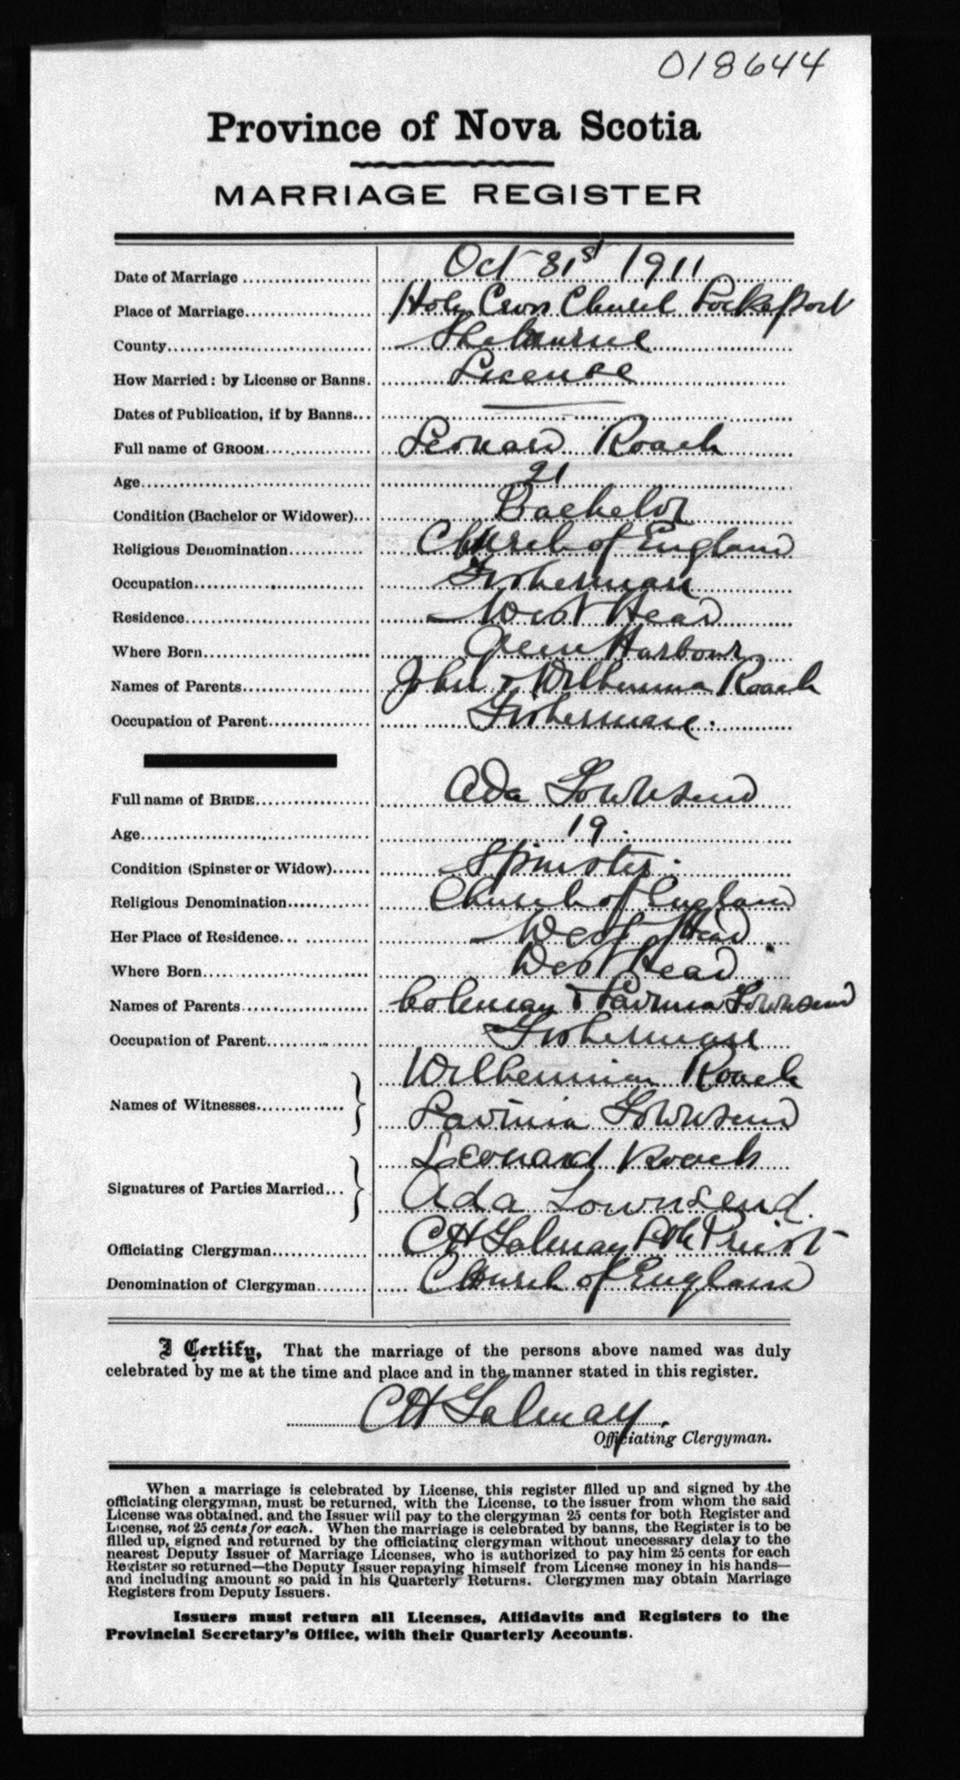 018644
Province of Nova Scotia
MARRIAGE REGISTER
Date of Marriage Oct 31st 1911
Place of Marriage Holy Cross Church Lockeport
County Shelburne
How Married: by License or Banns. License
Dates of Publication, if by Banns
Full name of GROOM Leonard Roach
Age 21
Condition (Bachelor or Widower) Bachelor
Religious Denomination Church of England
Occupation Fisherman
Residence West Head
Where Born Harbour
Names of Parents John & Wilhemina Roach
Occupation of Parent Fisherman.
Full name of BRIDE Ada Townsend
Age 19.
Condition (Spinster or Widow) Spinster.
Religious Denomination Church of England
Her Place of Residence West Head
Where Born West Head
Names of Parents Coleman & Lavinia Townsend
Occupation of Parent Fisherman
Names of Witnesses Wilhemina Roach
Lavinia Townsend
Signatures of Parties Married Leonard Roach
Ada Townsend.
Officiating Clergyman CH Talmay Priest
Denomination of Clergyman Church of England
I Certify, That the marriage of the persons above named was duly
celebrated by me at the time and place and in the manner stated in this register.
CH Talmay.
Officiating Clergyman.
When a marriage is celebrated by License, this register filled up and signed by the
officiating clergyman, must be returned, with the License, to the issuer from whom the said
License was obtained. and the Issuer will pay to the clergyman 25 cents for both Register and
License, not 25 cents for each. When the marriage is celebrated by banns, the Register is to be
filled up, signed and returned by the officiating clergyman without unecessary delay to the
nearest Deputy Issuer of Marriage Licenses, who is authorized to pay him 25 cents for each
Register so returned—the Deputy Issuer repaying himself from License money in his hands—
and including amount so paid in his Quarterly Returns. Clergymen may obtain Marriage
Registers from Deputy Issuers.
Issuers must return all Licenses, Affidavits and Registers to the
Provincial Secretary's Office, with their Quarterly Accounts.